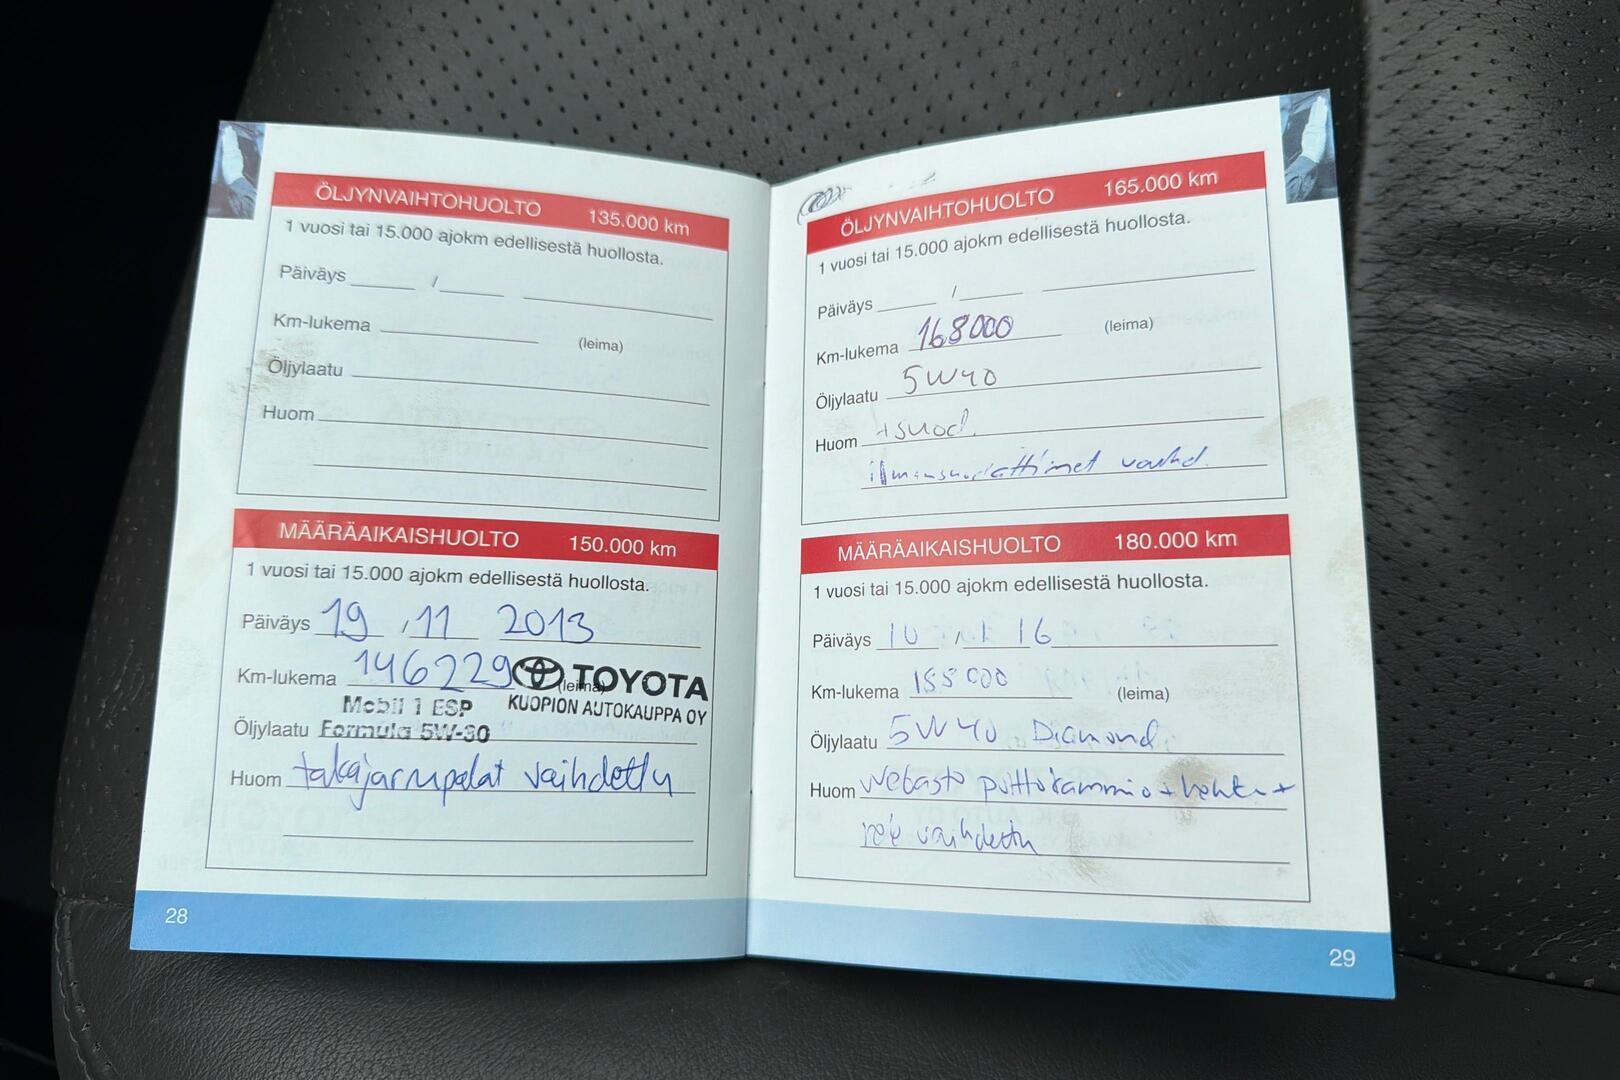 ÖLJYNVAIHTOHUOLTO 135.000 km
1 vuosi tai 15.000 ajokm edellisestä huollosta.
Päiväys /
Km-lukema (leima)
Öljylaatu
Huom
MÄÄRÄAIKAISHUOLTO 150.000 km
1 vuosi tai 15.000 ajokm edellisestä huollosta.
Päiväys 19 / 11 2013
Km-lukema 146229 (leima) TOYOTA
KUOPION AUTOKAUPPA OY
Mobil 1 ESP
Öljylaatu Formula 5W-30
Huom takajarrupalat vaihdettu
28
ÖLJYNVAIHTOHUOLTO 165.000 km
1 vuosi tai 15.000 ajokm edellisestä huollosta.
Päiväys /
Km-lukema 168000 (leima)
Öljylaatu 5W40
Huom +suod.
ilmansuodattimet vaihd.
MÄÄRÄAIKAISHUOLTO 180.000 km
1 vuosi tai 15.000 ajokm edellisestä huollosta.
Päiväys 10 / 1 16
Km-lukema 185000 (leima)
Öljylaatu 5W40 Diamond
Huom webasto polttokammio + hehku +
rele vaihdettu
29